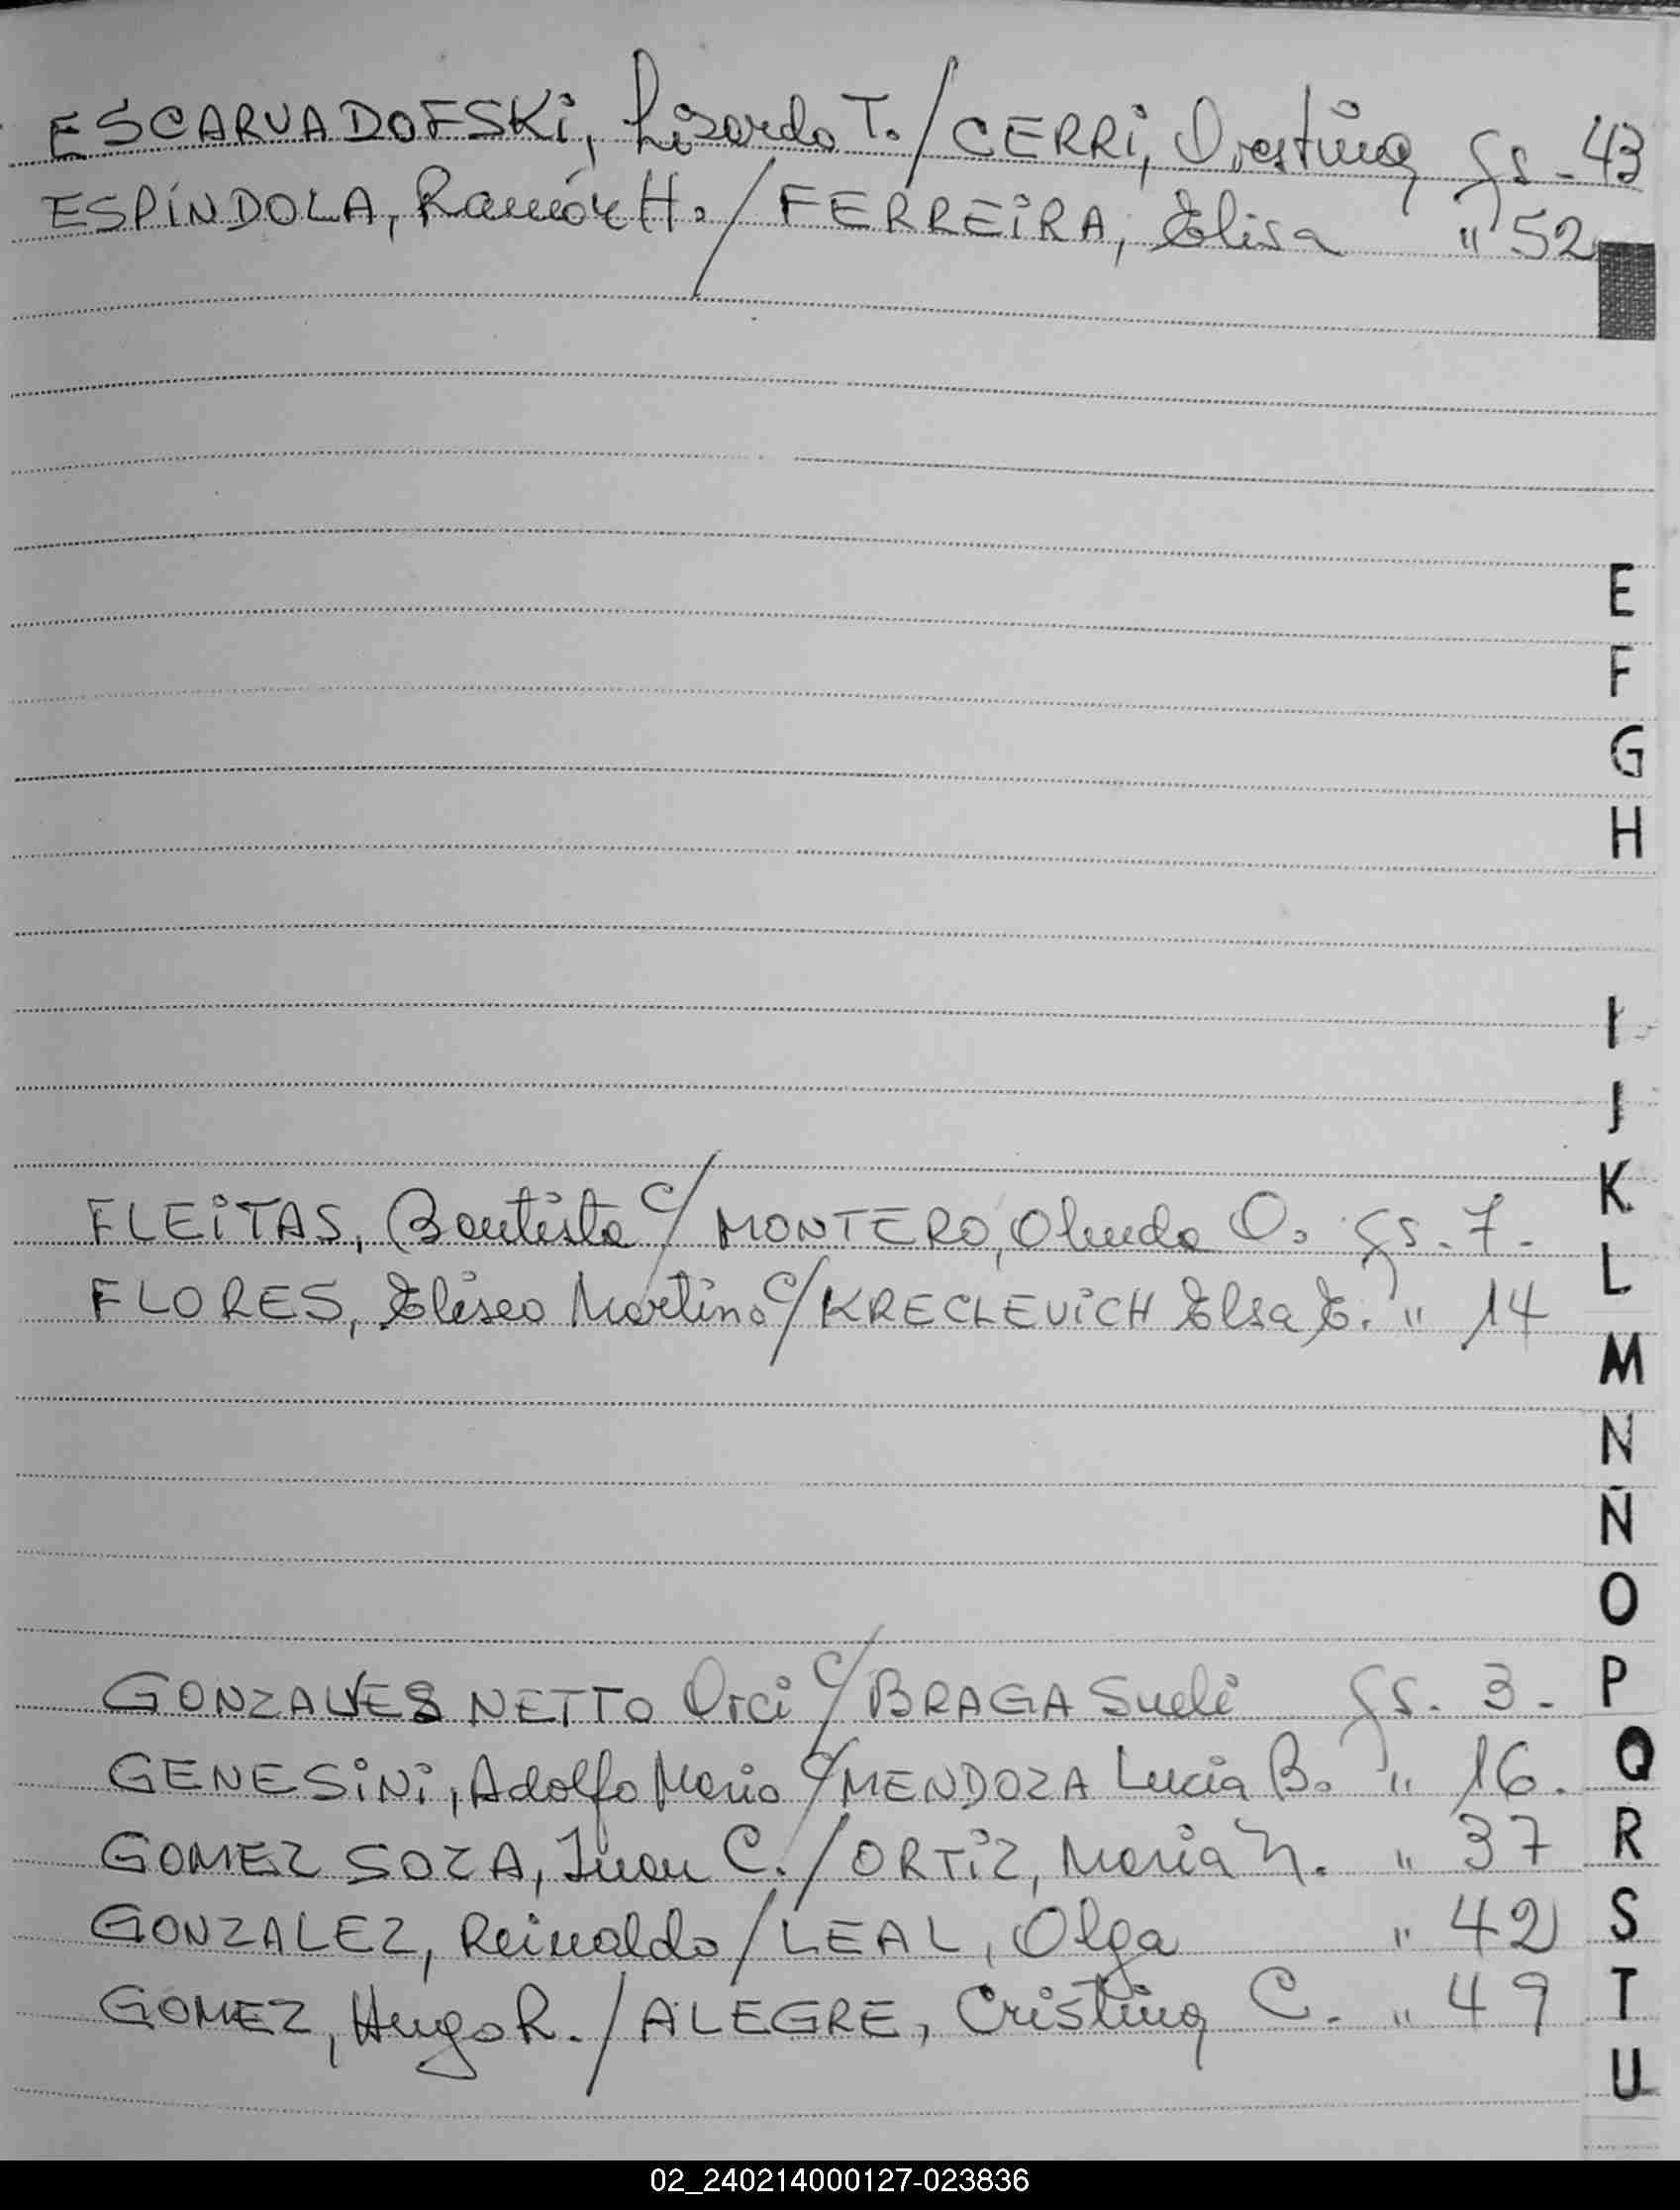 ESCARVADOFSKI, Lisardo T./CERRI, Orestina fs - 43
ESPÍNDOLA, Ramón H./FERREIRA, Elisa " 52
E
F
G
H
I
J
K
FLEITAS, Bautista c/ MONTERO, Olinda O. fs. 7.
L
FLORES, Eliseo Martin c/ KRECLEVICH Elsa E. " 14
M
N
Ñ
O
GONZALVES NETTO Orci c/ BRAGA Sueli fs. 3.
P
GENESINI, Adolfo Mario c/ MENDOZA Lucia B. " 16.
Q
GOMEZ SOZA, Juan C./ORTIZ, Maria " 37
R
GONZALEZ, Reinaldo/LEAL, Olga " 42
S
GOMEZ, Hugo R./ALEGRE, Cristina C. " 49
T
U
02_240214000127-023836